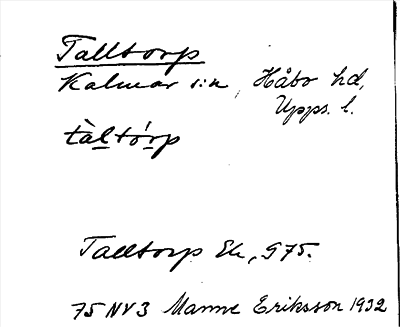 Talltorp
Kalmar s:n, Håbo hd,
Upps. l.
tàltórp
Talltorp Ek, 975.
75 NV 3 Manne Eriksson 1932